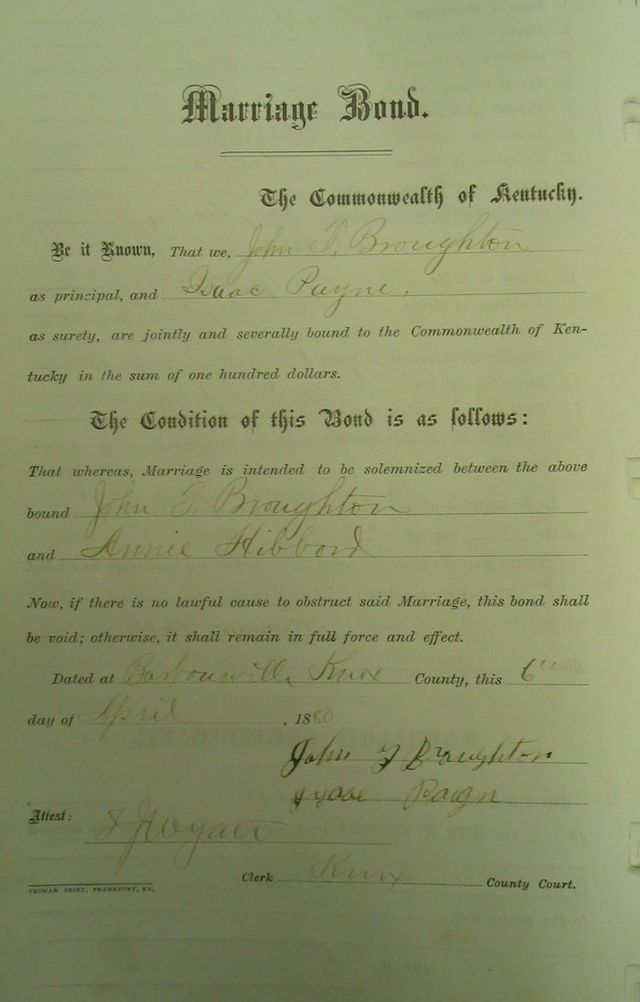 Marriage Bond.
The Commonwealth of Kentucky.
Be it Known, That we, John T. Broughton
as principal, and Isaac Payne,
as surety, are jointly and severally bound to the Commonwealth of Ken-
tucky in the sum of one hundred dollars.
The Condition of this Bond is as follows:
That whereas, Marriage is intended to be solemnized between the above
bound John T. Broughton
and Annie Hibbard
Now, if there is no lawful cause to obstruct said Marriage, this bond shall
be void; otherwise, it shall remain in full force and effect.
Dated at Barbourville Knox County, this 6"
day of April , 1880
John T Broughton
Paign
Attest: Wyatt
Clerk Knox County Court.
YEOMAN PRINT, FRANKFORT, KY.